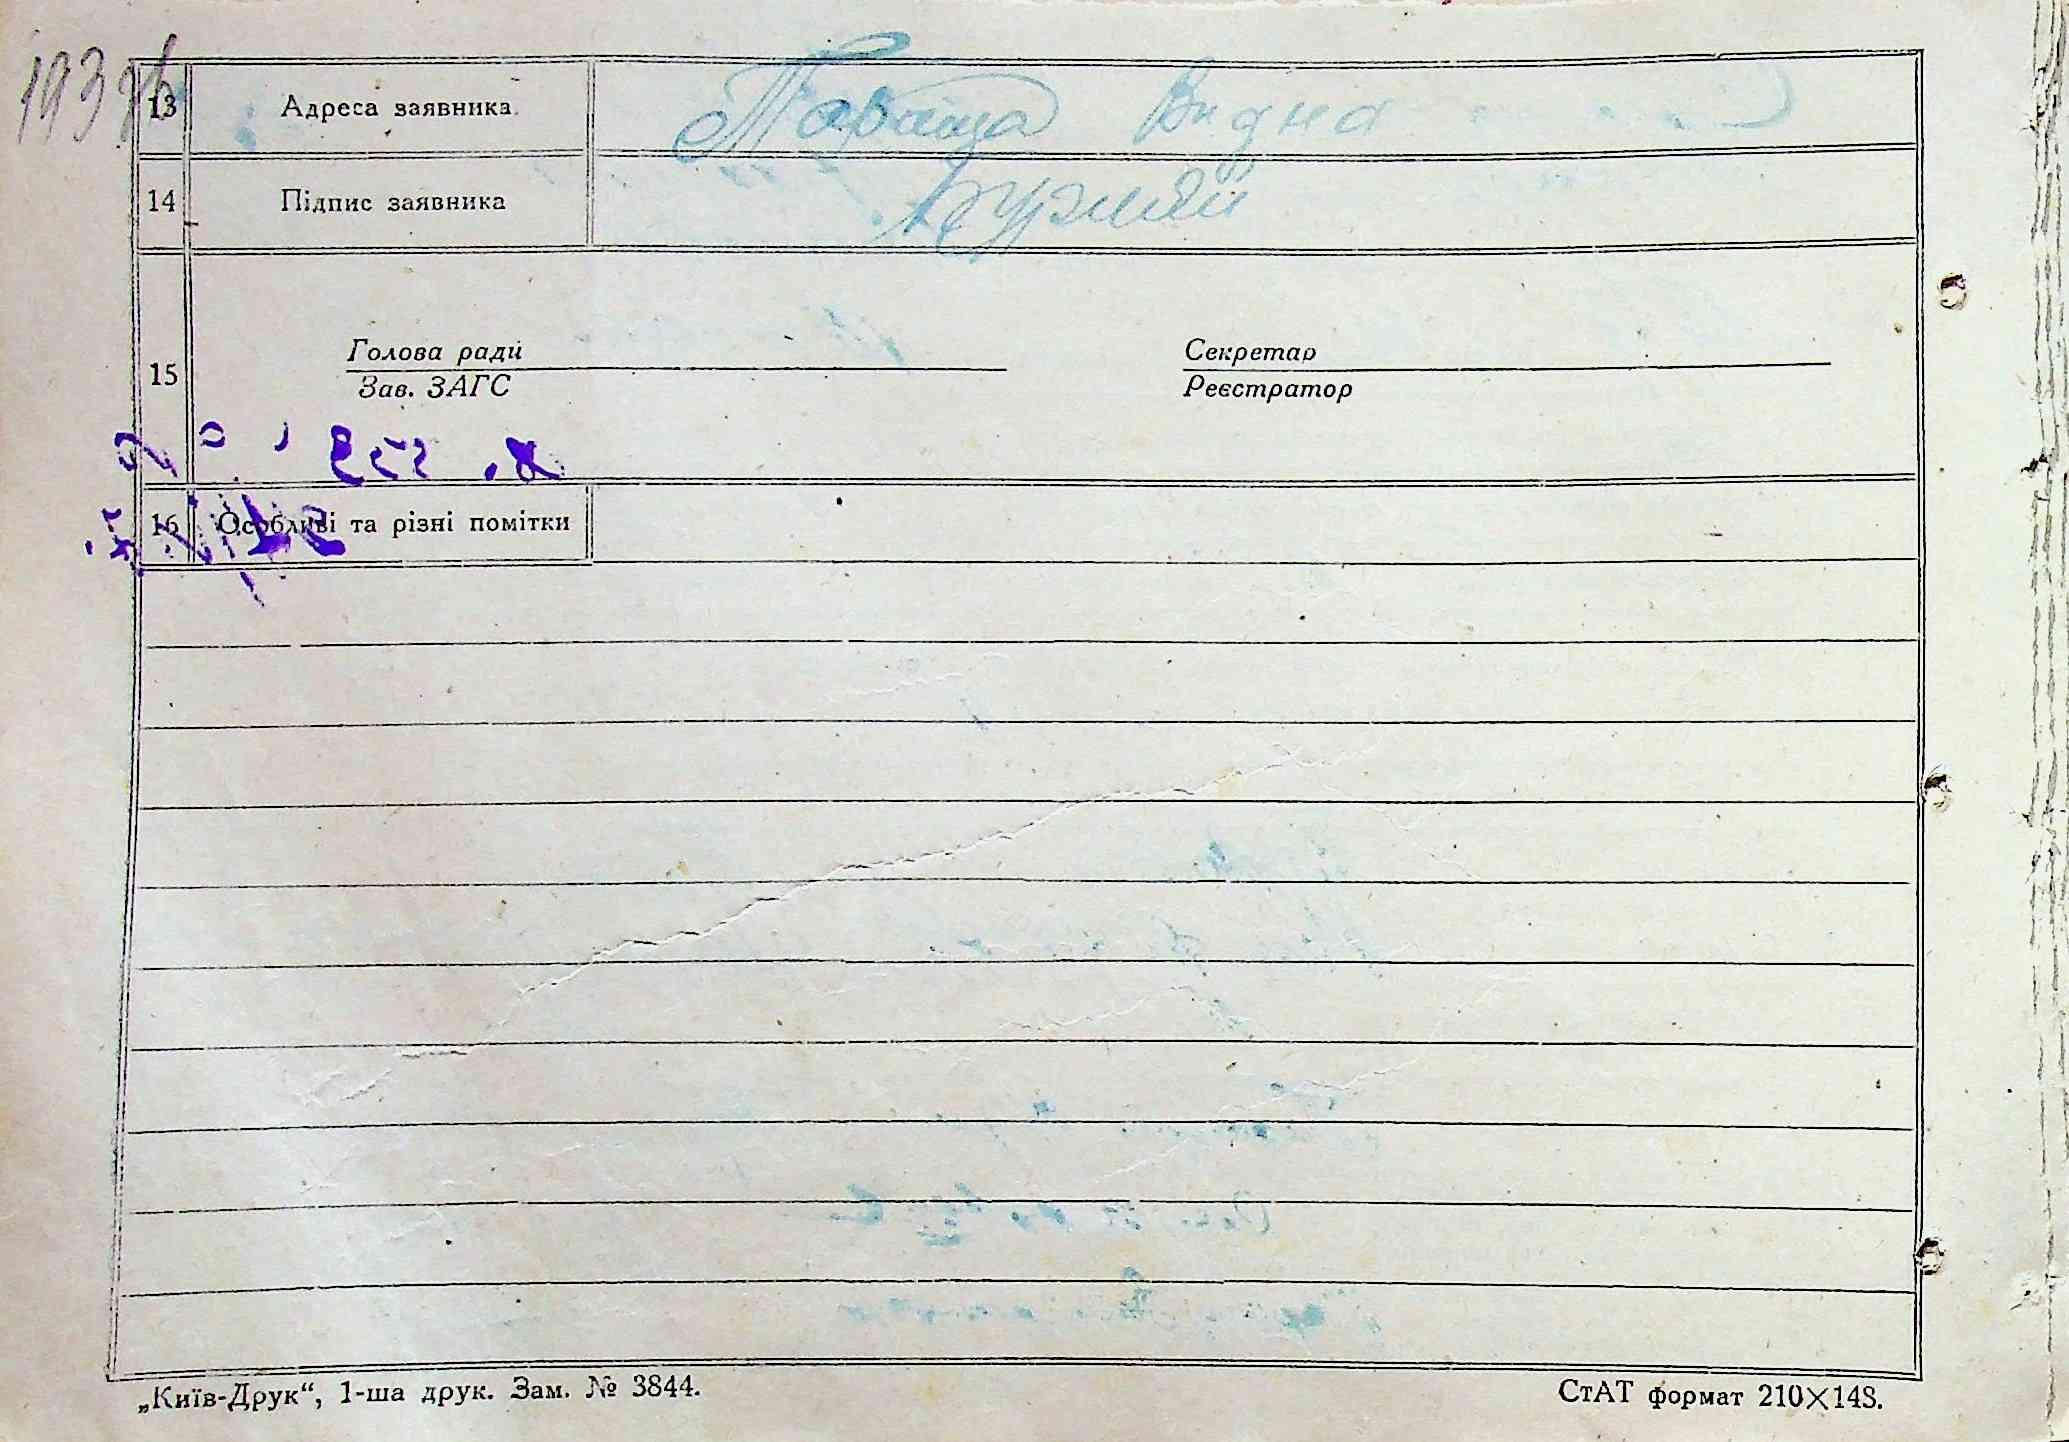 193
13 Адреса заявника Тараща Видна
14 Підпис заявника
15 Голова ради Секретар
Зав. ЗАГС Реєстратор
16 Особливі та різні помітки
„Київ-Друк“, 1-ша друк. Зам. № 3844. СтАТ формат 210×148.